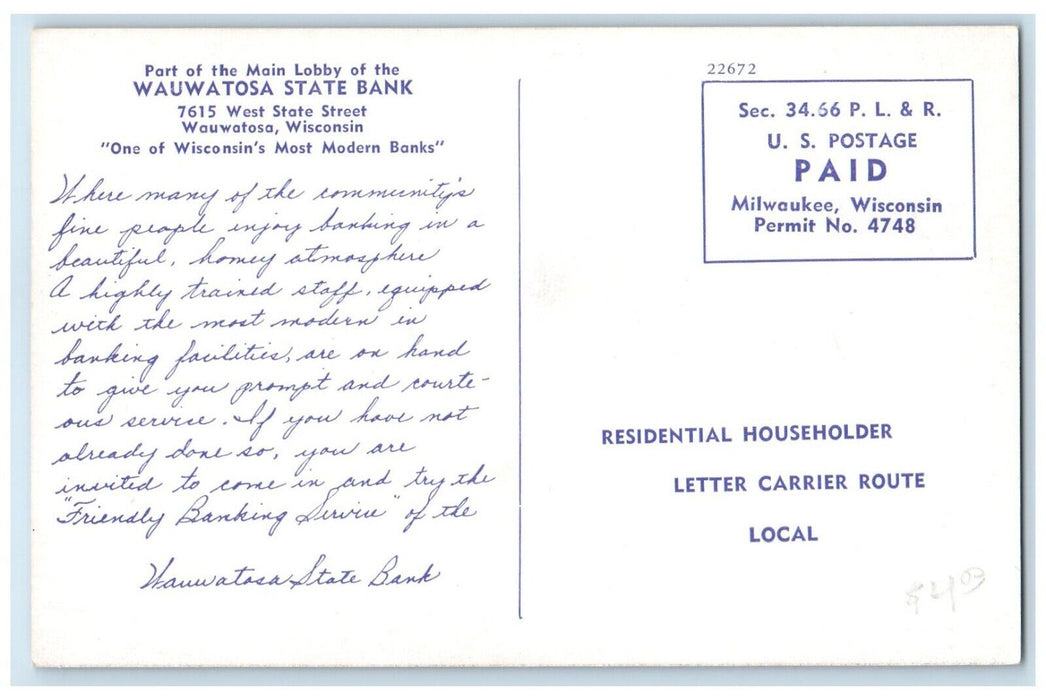 Part of the Main Lobby of the
WAUWATOSA STATE BANK
7615 West State Street
Wauwatosa, Wisconsin
"One of Wisconsin's Most Modern Banks"
Where many of the community's
fine people enjoy banking in a
beautiful, homey atmosphere
A highly trained staff, equipped
with the most modern in
banking facilities, are on hand
to give you prompt and courte-
ous service. If you have not
already done so, you are
invited to come in and try the
"Friendly Banking Service" of the
Wauwatosa State Bank
22672
Sec. 34.66 P. L. & R.
U. S. POSTAGE
PAID
Milwaukee, Wisconsin
Permit No. 4748
RESIDENTIAL HOUSEHOLDER
LETTER CARRIER ROUTE
LOCAL